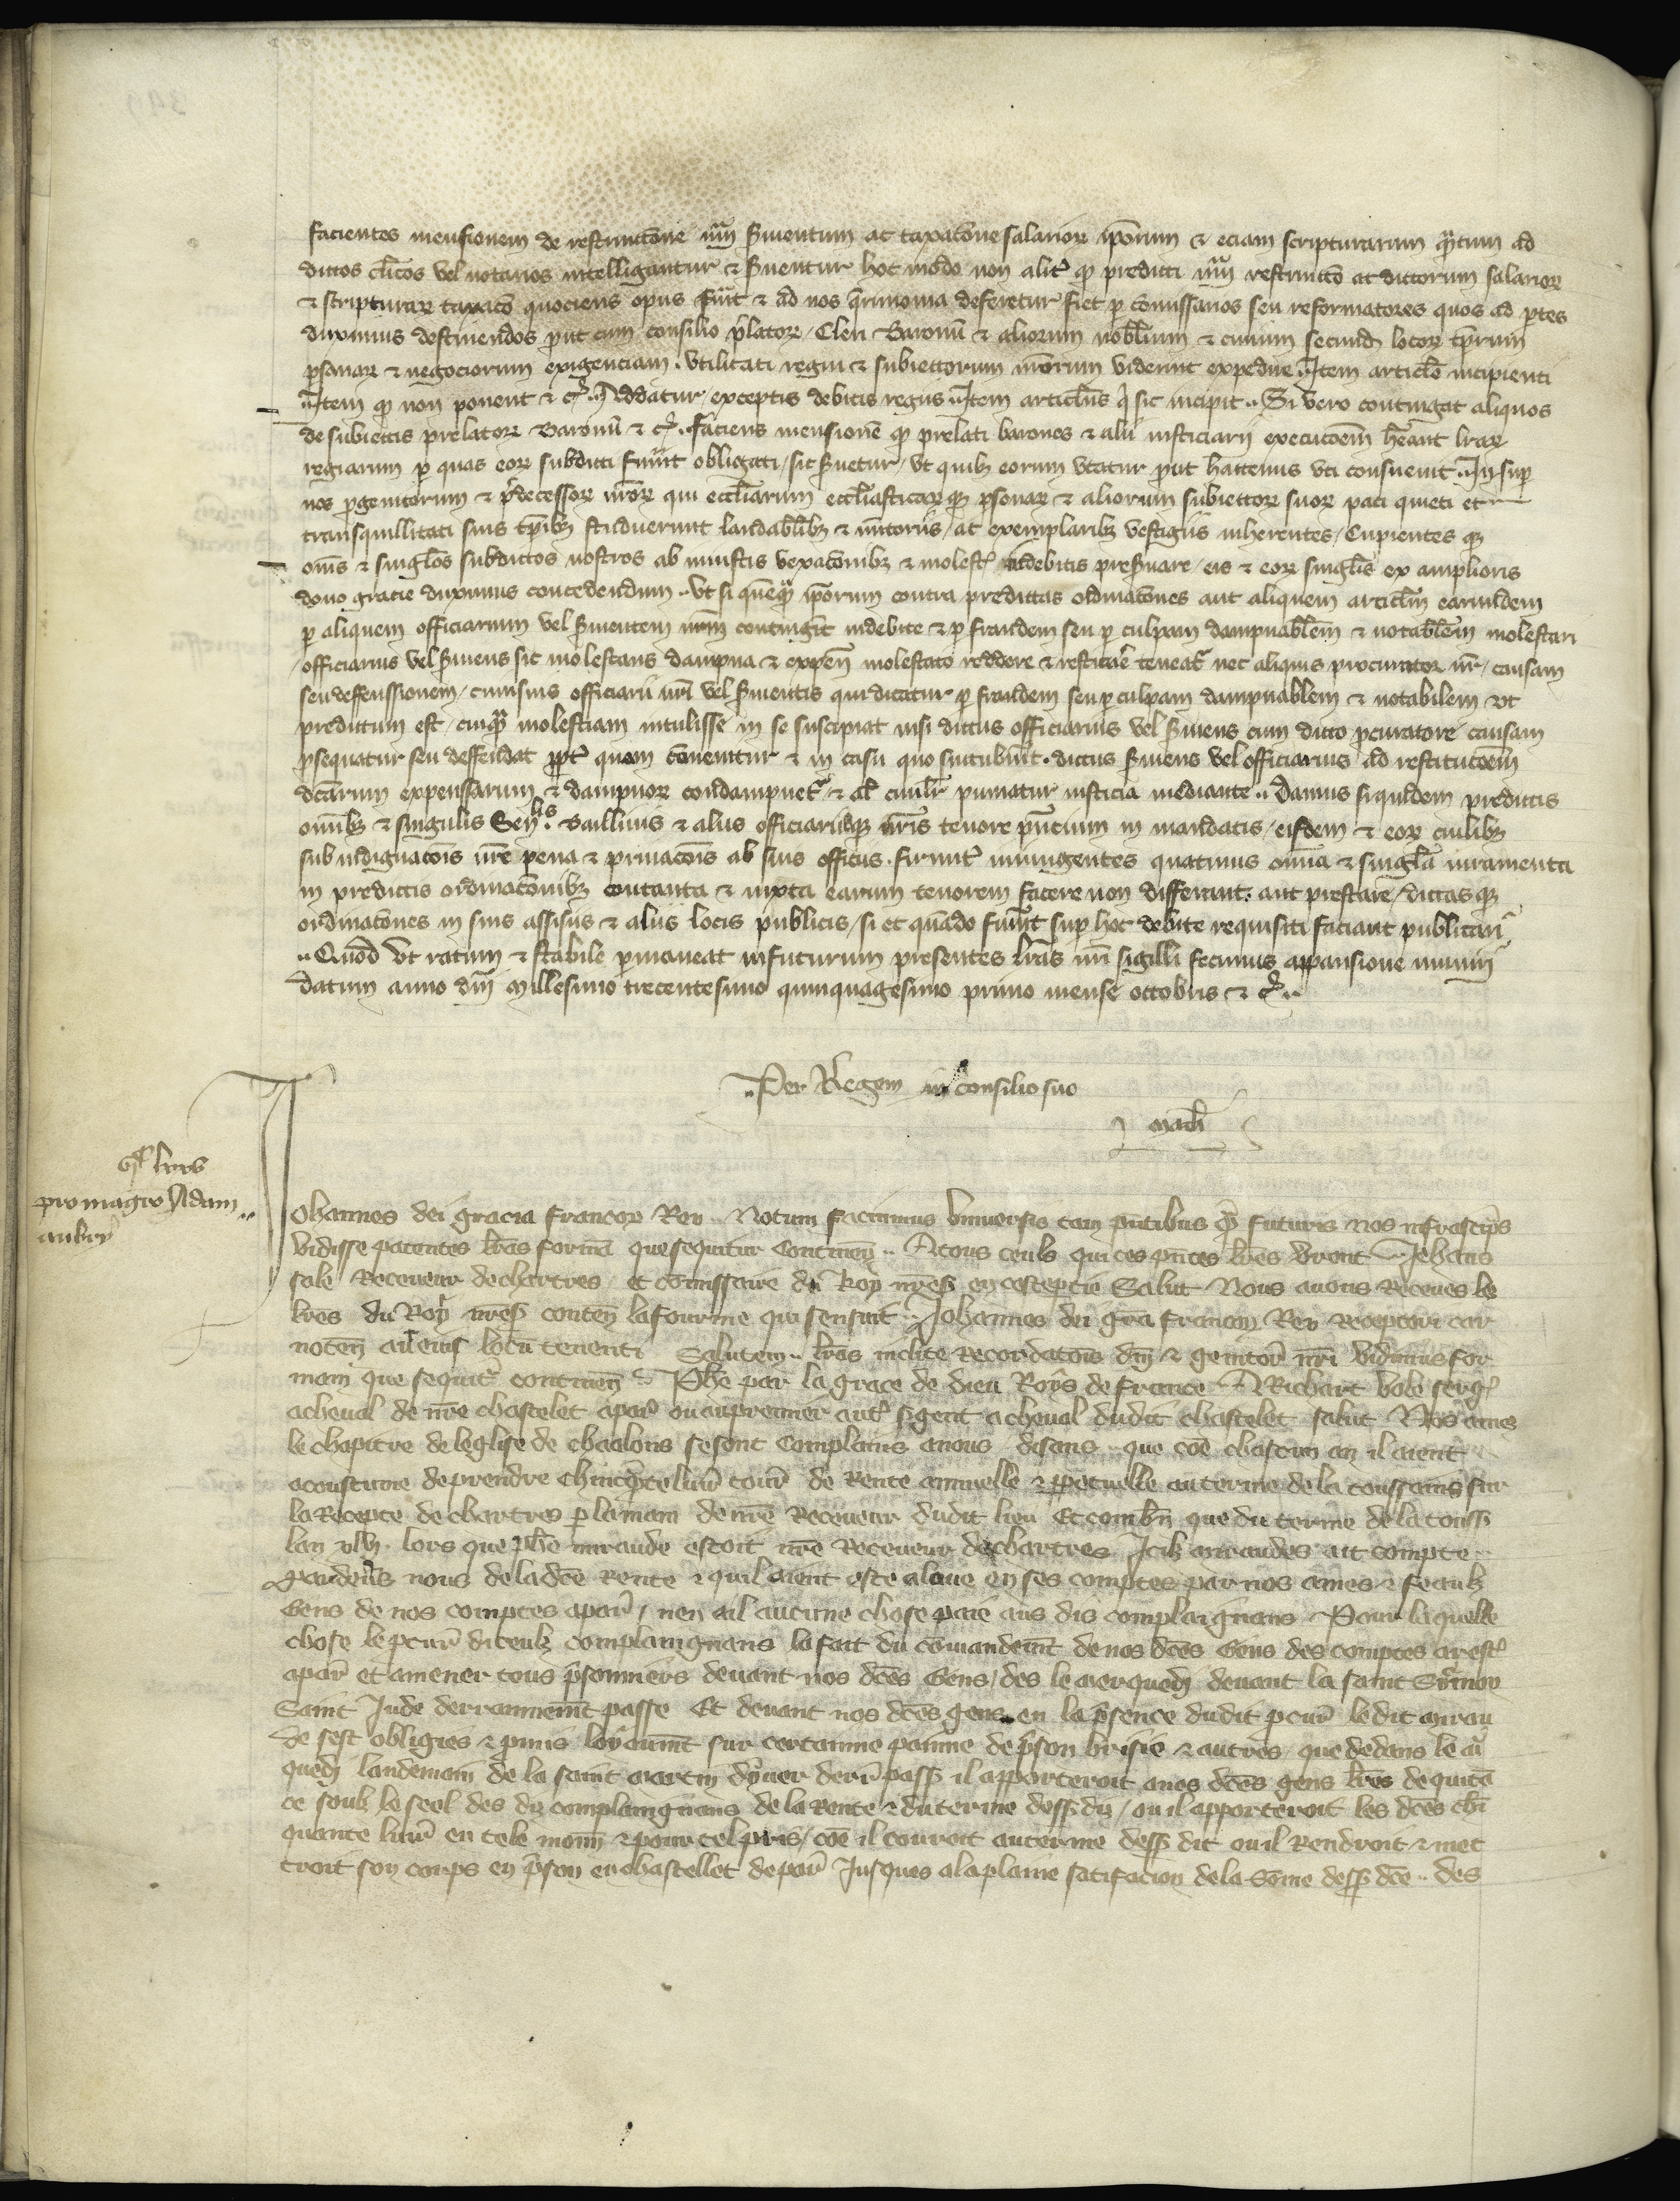 facientes mensionem de restrinctōne nr̄m s̄uientum ac taxatōne salarioꝝ ip̄orum & eciam scripturarum q̄ntum ad
dictos cl̄icos vel notarios intelligantur & s̄uentur hoc modo non alit̄ ꝙ predicti nr̄m restrinctō ac dictorum salarioꝝ
& scripturaꝝ taxatō quociens opus fu̅it & ad nos q̄rimonia deferetur fiet ꝑ cōmissarios seu reformatores quos ad ꝑtes
duximus destinendos put cum consilio p̄latoꝝ / Cleri Baronū & aliorum nobilium & ciuium secund̄ locoꝝ tp̄rum
ꝑsonaꝝ & negociorum exigenciam . vtilitati regni & subiectorum nr̄orum viderint expedire .. Item articl̄o incipienti
Item ꝙ non ponent & cᵃ .. Addatur / exceptis debitis regiis .. Item articl̄us q̄ sic incipit .. Si vero contingat aliquos
de subiectis prelatoꝝ Baronū & cᵃ . faciens mensionē ꝙ prelati barones & alii iusticiarii execucōem h̄eant lr̄aꝝ
regiarum ꝑ quas eoꝝ subditi fu̅int obligati / sic s̄uetur / vt quilꝫ eorum vtatur put hactenus vti consueuit .. In suꝑ
nos ꝓgenitorum & p̄decessoꝝ nr̄oꝝ qui eccl̄iarum eccl̄iasticarꝙꝫ ꝑsonaꝝ & aliorum subiectoꝝ suoꝝ paci quieti et
transquillitati suis tp̄ibꝫ studuerunt laudabl̄ibꝫ & imitoriis / ac exemplaribꝫ vestigiis inherentes / Cupientes qꝫ
om̄s & singl̄os subditos nostros ab iniustis vexatōnibꝫ & molest̄ indebitis pres̄uare / eis & eoꝝ singl̄is ex amplioris
dono gracie duximus concedendum .. Vt si quēqᵃ ip̄orum contra predictas ordinatōnes aut aliquem articl̄m earumdem
ꝑ aliquem officiarium vel s̄uientem nr̄m contingit̄ indebite & ꝑ fraudem seu ꝑ culpam dampnabl̄em & notabl̄em molestari
officiarius vel s̄uiens sic molestans dampna & expen̄ molestato reddere & restitue̅ teneat̄ nec aliquis procurator nr̄ / causam
seu deffenssionem / cuiusuis officiarii nr̄i vel s̄uientis qui dicatur ꝑ fraudem seu ꝑ culpam dampnablem & notabilem vt
predictum est / cuiqᵃ molestiam intulisse in se suscipiat nisi dictus officiarius vel s̄uiens cum dicto ꝓcuratore causam
ꝓsequatur seu deffendat ꝓpt̄ quam cōuenitur & in casu quo succubu̅it . dictus s̄uiens vel officiarius ad restitucōem
dc̄arum expenssarum & dampnoꝝ condampnet̄ & al̄ ciuilr̄ puniatur iusticia mediante .. Damus siquidem predictis
om̄ibꝫ & singulis Senˡˡⁱˢ . Bailliuis & aliis officiariisqꝫ nr̄is tenore pn̄cium in mandatis / eisdem & eoꝝ cuilibꝫ
sub indignatōis nr̄e pena & priuacōis ab suis officiis . firmit̄ iniungentes quatinus om̄ia & singl̄a iuramenta
in predictis ordinatōnibꝫ contenta & iuxta earum tenorem facere non differant . aut prestare / dictas qꝫ
ordinatōnes in suis assisiis & aliis locis publicis / si et quādo fu̅int suꝑ hoc debite requisiti faciant publicari
.. Quod vt ratum & stabile ꝑmaneat in futurum presentes lr̄as nr̄i sigilli fecimus appansione muniri
Datum anno dn̄i Millesimo trecentesimo quinquagesimo primo mense octobris & cᵃ ..
.. Per Regem in consilio suo
Mach̄
pro magro Adam ..
Johannes dei gracia francoꝝ Rex .. Notum facimus vniuersis tam pn̄tibus q̄ futuris nos infrascrip̄s
vidisse patentes lr̄as formā que sequitur Continen̄ .. A tous ceuls qui ces pn̄tes lr̄es verront .. Jehans
sale Receueur de chartres / et cōmissaire du Roy nr̄eſ en ceste ptie Salut Nous auons Receues le
lr̄es du Roy nr̄eſ conten̄ la fourme qui sensuit .. Johannes dei gr̄a francoꝝ Rex Receptori car
noten̄ aut eius locū tenenti Salutem .. lr̄as inclite Recordatōis dn̄i & genitor̄ nr̄i vidimus for
mam que sequit̄ continen̄ .. Ph̄e par la grace de dieu Roys de france A Richart bole serḡ
a cheual de nr̄e chastelet a par̄ ou au premier aut̄ s̄gent a cheual dudit chastelet salut Nos ames
le chapitre de leglise de chaalons se sont Complains a nous disans .. que cōe chascun an il aient
acoustume de prendre Chinq̄nte liur̄ tour̄ de Rente annuelle & ꝑpetuelle au terme de la toussains sur
la Recepte de chartres ꝑ la main de nr̄e Receueur dudit lieu Et combn̄ que du terme de la touss̄
lan xlvij . lors que ph̄e miraude estoit nr̄e Receueur de chartres Icilꝫ miraudes ait compte
par deuers nous de la dc̄e Rente & quil aient este aloue en ses comptes par nos ames & feaulꝫ
Gens de nos comptes a par̄ / nen ail aucune chose paie aus dis complaignans Pour la quelle
chose le pcur̄ diceulꝫ complaingnans la fait du cōmandemt̄ de nos dc̄es Gens des comptes arest̄
a par̄ et amener tous p̄sonniers deuant nos dc̄es Gens / des le merquedi deuant la saint Symon
Saint Jude derrainnemēt passe Et deuant nos dc̄es gens en la p̄sence dudit pcur̄ le dit mirau
de sest obligies & pmis loyaumt̄ sur certainne painne de p̄son brisie & autres que dedans le m̄
quedi landemain de la saint Martin dyuer derr̄ pass̄ il apporteroit a nos dc̄es gens lr̄es de quitā
ce soulꝫ le seel des diz complaingnans de la Rente & du terme dess̄ diz / ou il apporteroit les dc̄es chī
quante liur̄ en tele monn̄ & pour tel pris / cōe il couroit au terme dess̄ dit ou il Rendroit & met
troit son corps en p̄son en chastellet de par̄ Jusques a la plaine satifacion de la sōme dess̄ dc̄e .. des